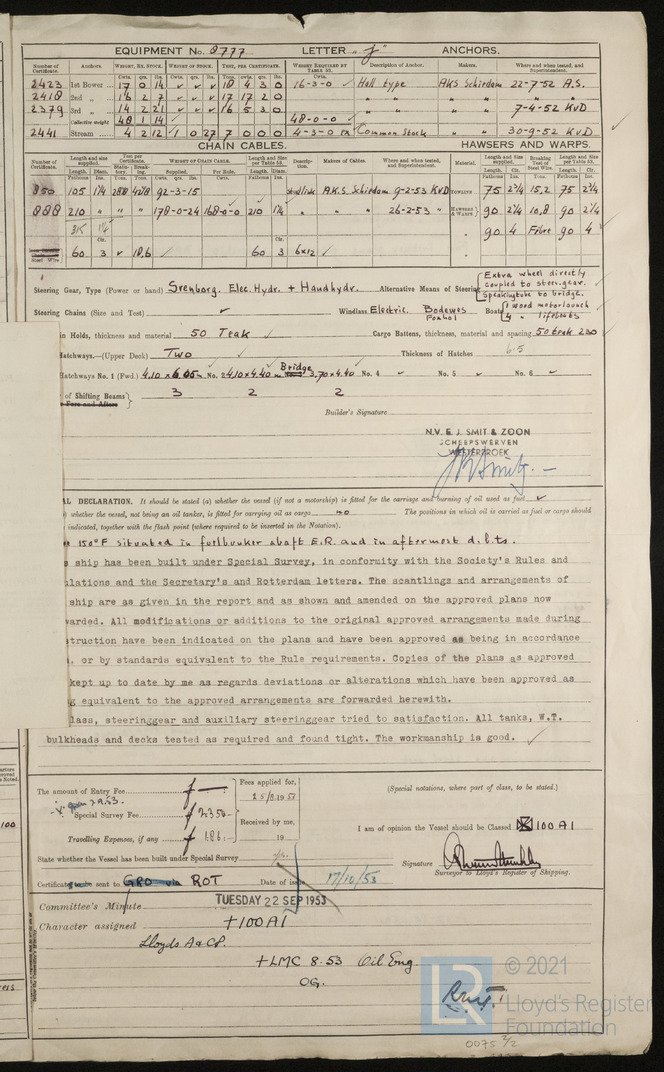 EQUIPMENT No. 8777 LETTER "J" ANCHORS.
Number of Certificate. Anchors. WEIGHT, EX. STOCK WEIGHT OF STOCK TEST, PER CERTIFICATE. WEIGHT REQUIRED BY TABLE 53. Description of Anchor. Makers. Where and when tested, and Superintendent.
Cwts. qrs. lbs. Cwts. qrs. lbs. Tons. cwts. qrs. lbs. Cwts.
2423 1st Bower 17 0 14 18 4 3 0 16-3-0 Hall type AKS Schiedam 22-7-52 A.S.
2418 2nd " 16 2 7 17 17 2 0 " " " "
2379 3rd " 14 2 21 16 5 3 0 " " " 7-4-52 KvD
Collective weight 48 1 14 48-0-0
2441 Stream 4 2 12 1 0 27 7 0 0 0 4-3-0 ex Common Stock " " 30-9-52 KvD
CHAIN CABLES. HAWSERS AND WARPS.
Number of Certificate. Length and size supplied. Test per Certificate WEIGHT OF CHAIN CABLE. Length and size per Table 53. Description. Makers of Cables. Where and when tested, and Superintendent. Material. Length and size supplied. Breaking Test of Steel Wire. Length and size per Table 53.
Length. Diam. Statutory. Breaking. Supplied. Per Rule. Length. Diam. Length. Cir. Length. Cir.
Fathoms Ins. Tons. Tons. Cwts. Fathoms Ins. Fathoms Ins. Tons Fathoms Ins.
850 105 92-3-15 studlink A.K.S. Schiedam 9-2-53 KvD TOWLINE 75 2¾ 15,2 75 2¾
888 210 " " " 178-0-24 168-0-0 210 1¼ " " " 26-2-53 " HAWSERS & WARPS 90 2¼ 10,8 90 2¼
90 4 Fibre 90 4
60 3 18,6 60 3 6x12
Steering Gear, Type (Power or hand) Svenborg. Elec. Hydr. + Handhydr. Alternative Means of Steering Extra wheel directly
coupled to steer.gear.
Speakingtube to bridge.
Steering Chains (Size and Test) Windlass Electric. Bodewes Boats 1 wood motorlaunch
4 lifeboats
in Holds, thickness and material 50 Teak Cargo Battens, thickness, material and spacing 50 teak 230
Hatchways.—(Upper Deck) Two Thickness of Hatches 65
Hatchways No. 1 (Fwd.) 4.10 x 6.05m No. 2 4.10x4.40 m Bridge 3.70x4.40 No. 4 No. 5 No. 6
of Shifting Beams 3 2 2
Builder's Signature
N.V. E. J. SMIT & ZOON
SCHEEPSWERVEN
WESTERBROEK
AL DECLARATION. It should be stated (a) whether the vessel (if not a motorship) is fitted for the carriage and burning of oil used as fuel
whether the vessel, not being an oil tanker, is fitted for carrying oil as cargo no The positions in which oil is carried as fuel or cargo should
indicated, together with the flash point (where required to be inserted in the Notation).
150°F situated in fuelbunker abaft E.R. and in aftermost d.b.ts.
ship has been built under Special Survey, in conformity with the Society's Rules and
lations and the Secretary's and Rotterdam letters. The scantlings and arrangements of
ship are as given in the report and as shown and amended on the approved plans now
warded. All modifications or additions to the original approved arrangements made during
truction have been indicated on the plans and have been approved as being in accordance
, or by standards equivalent to the Rule requirements. Copies of the plans as approved
kept up to date by me as regards deviations or alterations which have been approved as
g equivalent to the approved arrangements are forwarded herewith.
lass, steeringgear and auxiliary steeringgear tried to satisfaction. All tanks, W.T.
bulkheads and decks tested as required and found tight. The workmanship is good.
The amount of Entry Fee Fees applied for, (Special notations, where part of class, to be stated.)
15/8 1953
Special Survey Fee ƒ 2350- Received by me, I am of opinion the Vessel should be Classed 100 A1
Travelling Expenses, if any ƒ 186: 19
State whether the Vessel has been built under Special Survey
Signature
Surveyor to Lloyd's Register of Shipping.
Certificate sent to GRO via ROT Date of issue 17/10/53
Committee's Minute TUESDAY 22 SEP 1953
Character assigned +100A1
Lloyds A&CP.
+LMC 8.53 Oil Eng.
OG.
LR
© 2021
Lloyd's Register
Foundation
0075 2/2